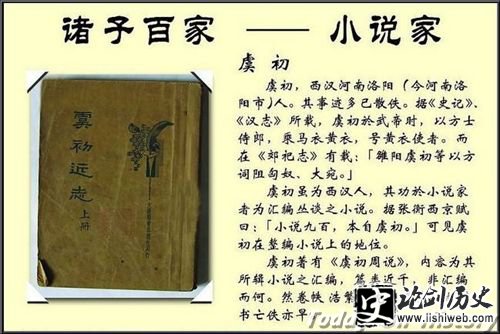 诸子百家 —— 小说家
虞初
虞初,西汉河南洛阳(今河南洛
阳市)人。其事迹多已散佚。据《史记》、
《汉志》所载,虞初於武帝时,以方士
侍郎,乘马衣黄衣,号黄衣使者。而
在《郊祀志》有载:「雒阳虞初等以方
词阻匈奴、大宛。」
虞初虽为西汉人,其功於小说家
者为汇编丛谈之小说。据张衡西京赋
曰:「小说九百,本自虞初。」可见虞
初在整编小说上的地位。
虞初著有《虞初周说》,内容为其
所辑小说之汇编,篇表近千,非汇编
而何。然卷帙浩繁
书亡佚亦早
虞初近志
上册
史论剑历史
www.lishiweb.com